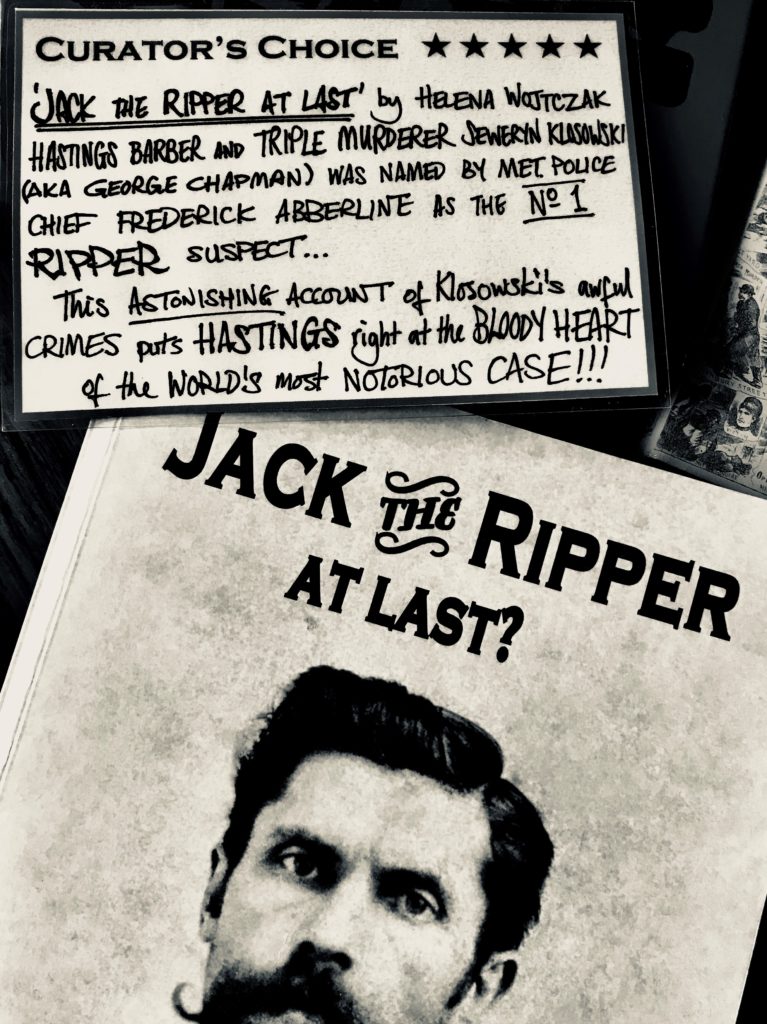 CURATOR'S CHOICE ★★★★★
'JACK THE RIPPER AT LAST' by HELENA WOJTCZAK
HASTINGS BARBER AND TRIPLE MURDERER SEWERYN KLOSOWSKI
(AKA GEORGE CHAPMAN) WAS NAMED BY MET. POLICE
CHIEF FREDERICK ABBERLINE AS THE Nº 1
RIPPER SUSPECT...
This ASTONISHING ACCOUNT of Klosowski's awful
CRIMES puts HASTINGS right at the BLOODY HEART
of the WORLD'S most NOTORIOUS CASE!!!
JACK THE RIPPER
AT LAST?